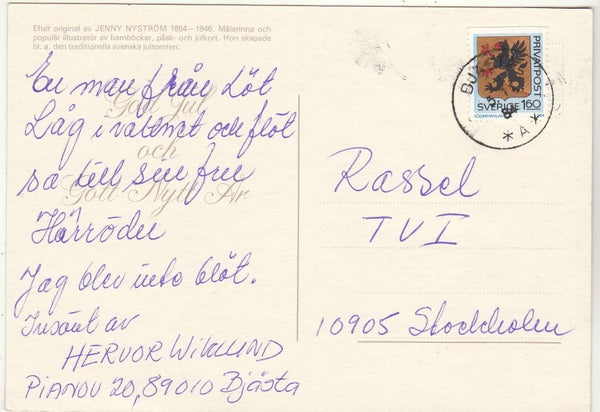 Efter original av JENNY NYSTRÖM 1854—1946. Målarinna och
populär illustratör av barnböcker, påsk- och julkort. Hon skapade
bl. a. den traditionella svenska jultomten.
En man från Löt
Låg i vattnet och flöt
sa till sin fru
Hörröder
Jag blev inte blöt.
Insänt av
HERVOR WIKLUND
PIANOV 20, 89010 Bjästa
God Jul
och
Gott Nytt År
PRIVATPOST
SVERIGE 160
SÖDERMANLAND
BJ
* A *
Rassel
TV I
10905 Stockholm